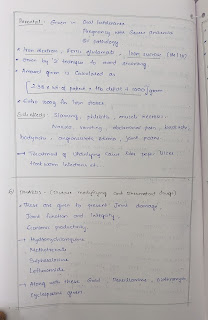 Parental :- Given in Oral intolerance
Pregnancy with Severe Anaemia
GI pathology
• Iron dextran, Ferric gluconate, Iron sucrose (IM/IV)
• Given by Z technique to avoid staining
• Amount given is calculated as
2.38 x wt of patient x Hb deficit + 1000 given
• Extra 500mg for Iron stores.
Side effects : Staining, phlebitis, muscle necrosis
Nausea, vomiting, abdominal pain, backache,
headache, angioneurotic edema, joint pains.
→ Treatment of Underlying cause like
treat worm infestation etc.
These are given to prevent Joint damage,
Joint function and integrity,
Economic productivity.
→ Hydroxychloroquine
Methotrexate
Sulphasalazine
Leflunomide
→ Along with these Gold, Penicillamine, Azathioprine,
Cyclosporine given